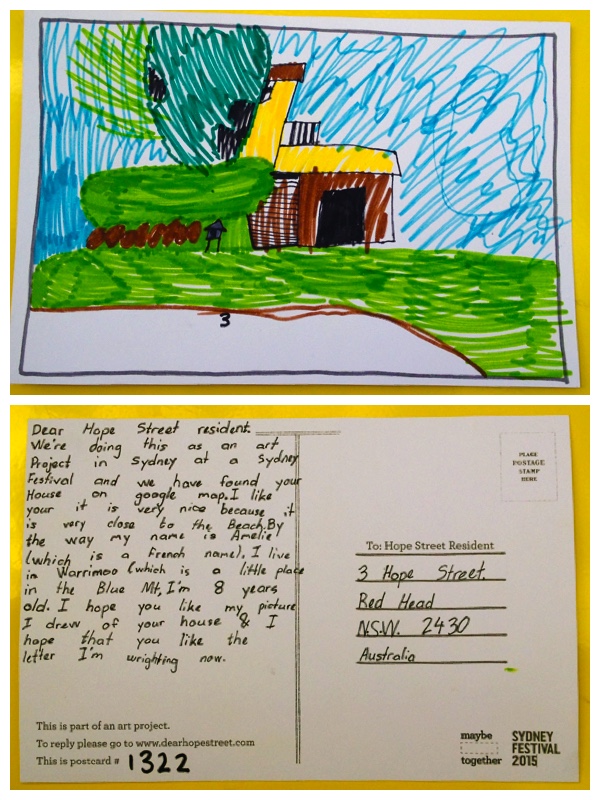 3
Dear Hope Street resident.
We're doing this as an art
Project in Sydney at a Sydney
Festival and we have found your
House on google map. I like
your it is very nice because it
is very close to the Beach. By
the way my name is Amelie
(which is a French name). I live
in Warrimoo (which is a little place
in the Blue Mt, I'm 8 years
old. I hope you like my picture
I drew of your house & I
hope that you like the
letter I'm wrighting now.
This is part of an art project.
To reply please go to www.dearhopestreet.com
This is postcard # 1322
PLACE
POSTAGE
STAMP
HERE
To: Hope Street Resident
3 Hope Street.
Red Head
N.S.W. 2430
Australia
maybe
together
SYDNEY
FESTIVAL
2015